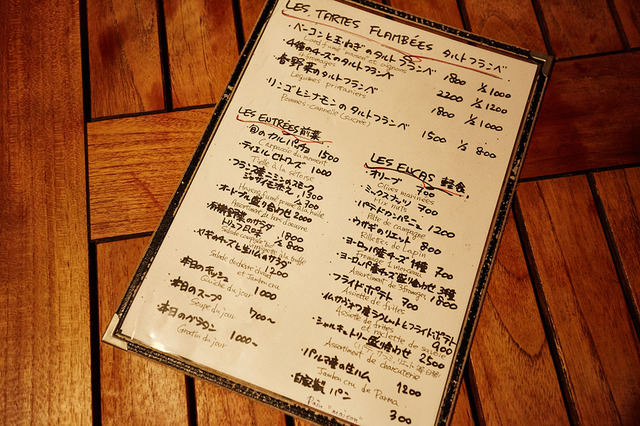 LES TARTES FLAMBÉES タルトフランベ
・ベーコンと玉ねぎのタルトフランベ 1800 ½ 1000
Lard fumé et oignons
・4種のチーズのタルトフランベ 2200 ½ 1200
4 fromages
・春野菜のタルトフランベ 1800 ½ 1000
Légumes printaniers
・リンゴとシナモンのタルトフランベ 1500 ½ 800
Pommes-cannelle (sucrée)
LES ENTRÉES 前菜
・旬のカルパッチョ 1500
Carpaccio du moment
・ティエルセトワーズ 1000
Tielle à la sétoise
・フランス産ニシンのスモーク
ジャガイモ添え 1300
½ 700
・オードブル盛り合わせ 2000
Assortiment de hors d'oeuvre
・有機野菜のサラダ
トリュフ風味 1800
½ 800
・ヤギのチーズと生ハムのサラダ 1200
Salade de chèvre chaud
et Jambon cru
・本日のキッシュ 1000
Quiche du jour
・本日のスープ 700〜
Soupe du jour
・本日のグラタン 1000〜
Gratin du jour
LES ENCAS 軽食
・オリーブ 700
Olives marinées
・ミックスナッツ 700
Mix nuts
・パテドカンパーニュ 1200
Pâté de campagne
・ウサギのリエット 800
Rillettes de Lapin
・ヨーロッパ産チーズ 1種 700
Fromage 1 morceau
・ヨーロッパ産チーズ盛り合わせ 3種 1800
Assortiment de 3 fromages
・フライドポテト 700
Assiette de frites
ラクレットとフライドポテト 900
Assiette de frites
et raclette de savoie
・シャルキュトリー盛り合わせ 2500
Assortiment de charcuterie
・パルマ産の生ハム 1200
Jambon cru de Parma
自家製パン 300
Pain "maison"